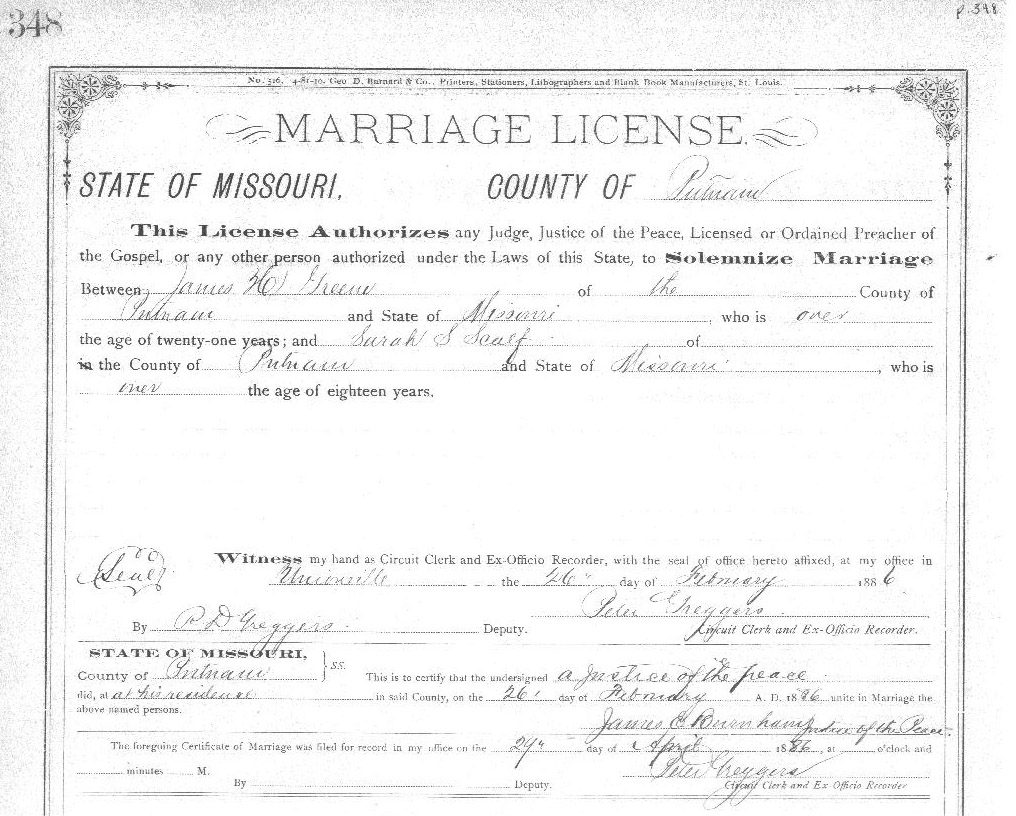 348
p. 348
No. 516. 4-81-10. Geo. D. Barnard & Co., Printers, Stationers, Lithographers and Blank Book Manufacturers, St. Louis.
MARRIAGE LICENSE.
STATE OF MISSOURI, COUNTY OF Putnam
This License Authorizes any Judge, Justice of the Peace, Licensed or Ordained Preacher of
the Gospel, or any other person authorized under the Laws of this State, to Solemnize Marriage
Between James H Greene of the County of
Putnam and State of Missouri, who is over
the age of twenty-one years; and Sarah S Scalf of
in the County of Putnam and State of Missouri, who is
over the age of eighteen years.
Seal
Witness my hand as Circuit Clerk and Ex-Officio Recorder, with the seal of office hereto affixed, at my office in
Unionville the 26" day of February 1886
Peter Greggers
By P. D Greggers Deputy. Circuit Clerk and Ex-Officio Recorder.
STATE OF MISSOURI,
County of Putnam ss. This is to certify that the undersigned a Justice of the peace
did, at at his residence in said County, on the 26' day of February A. D. 1886 unite in Marriage the
above named persons.
James E Burnham Justice of the Peace.
The foregoing Certificate of Marriage was filed for record in my office on the 29" day of April 1886, at o'clock and
minutes M. Peter Greggers
By Deputy. Circuit Clerk and Ex-Officio Recorder